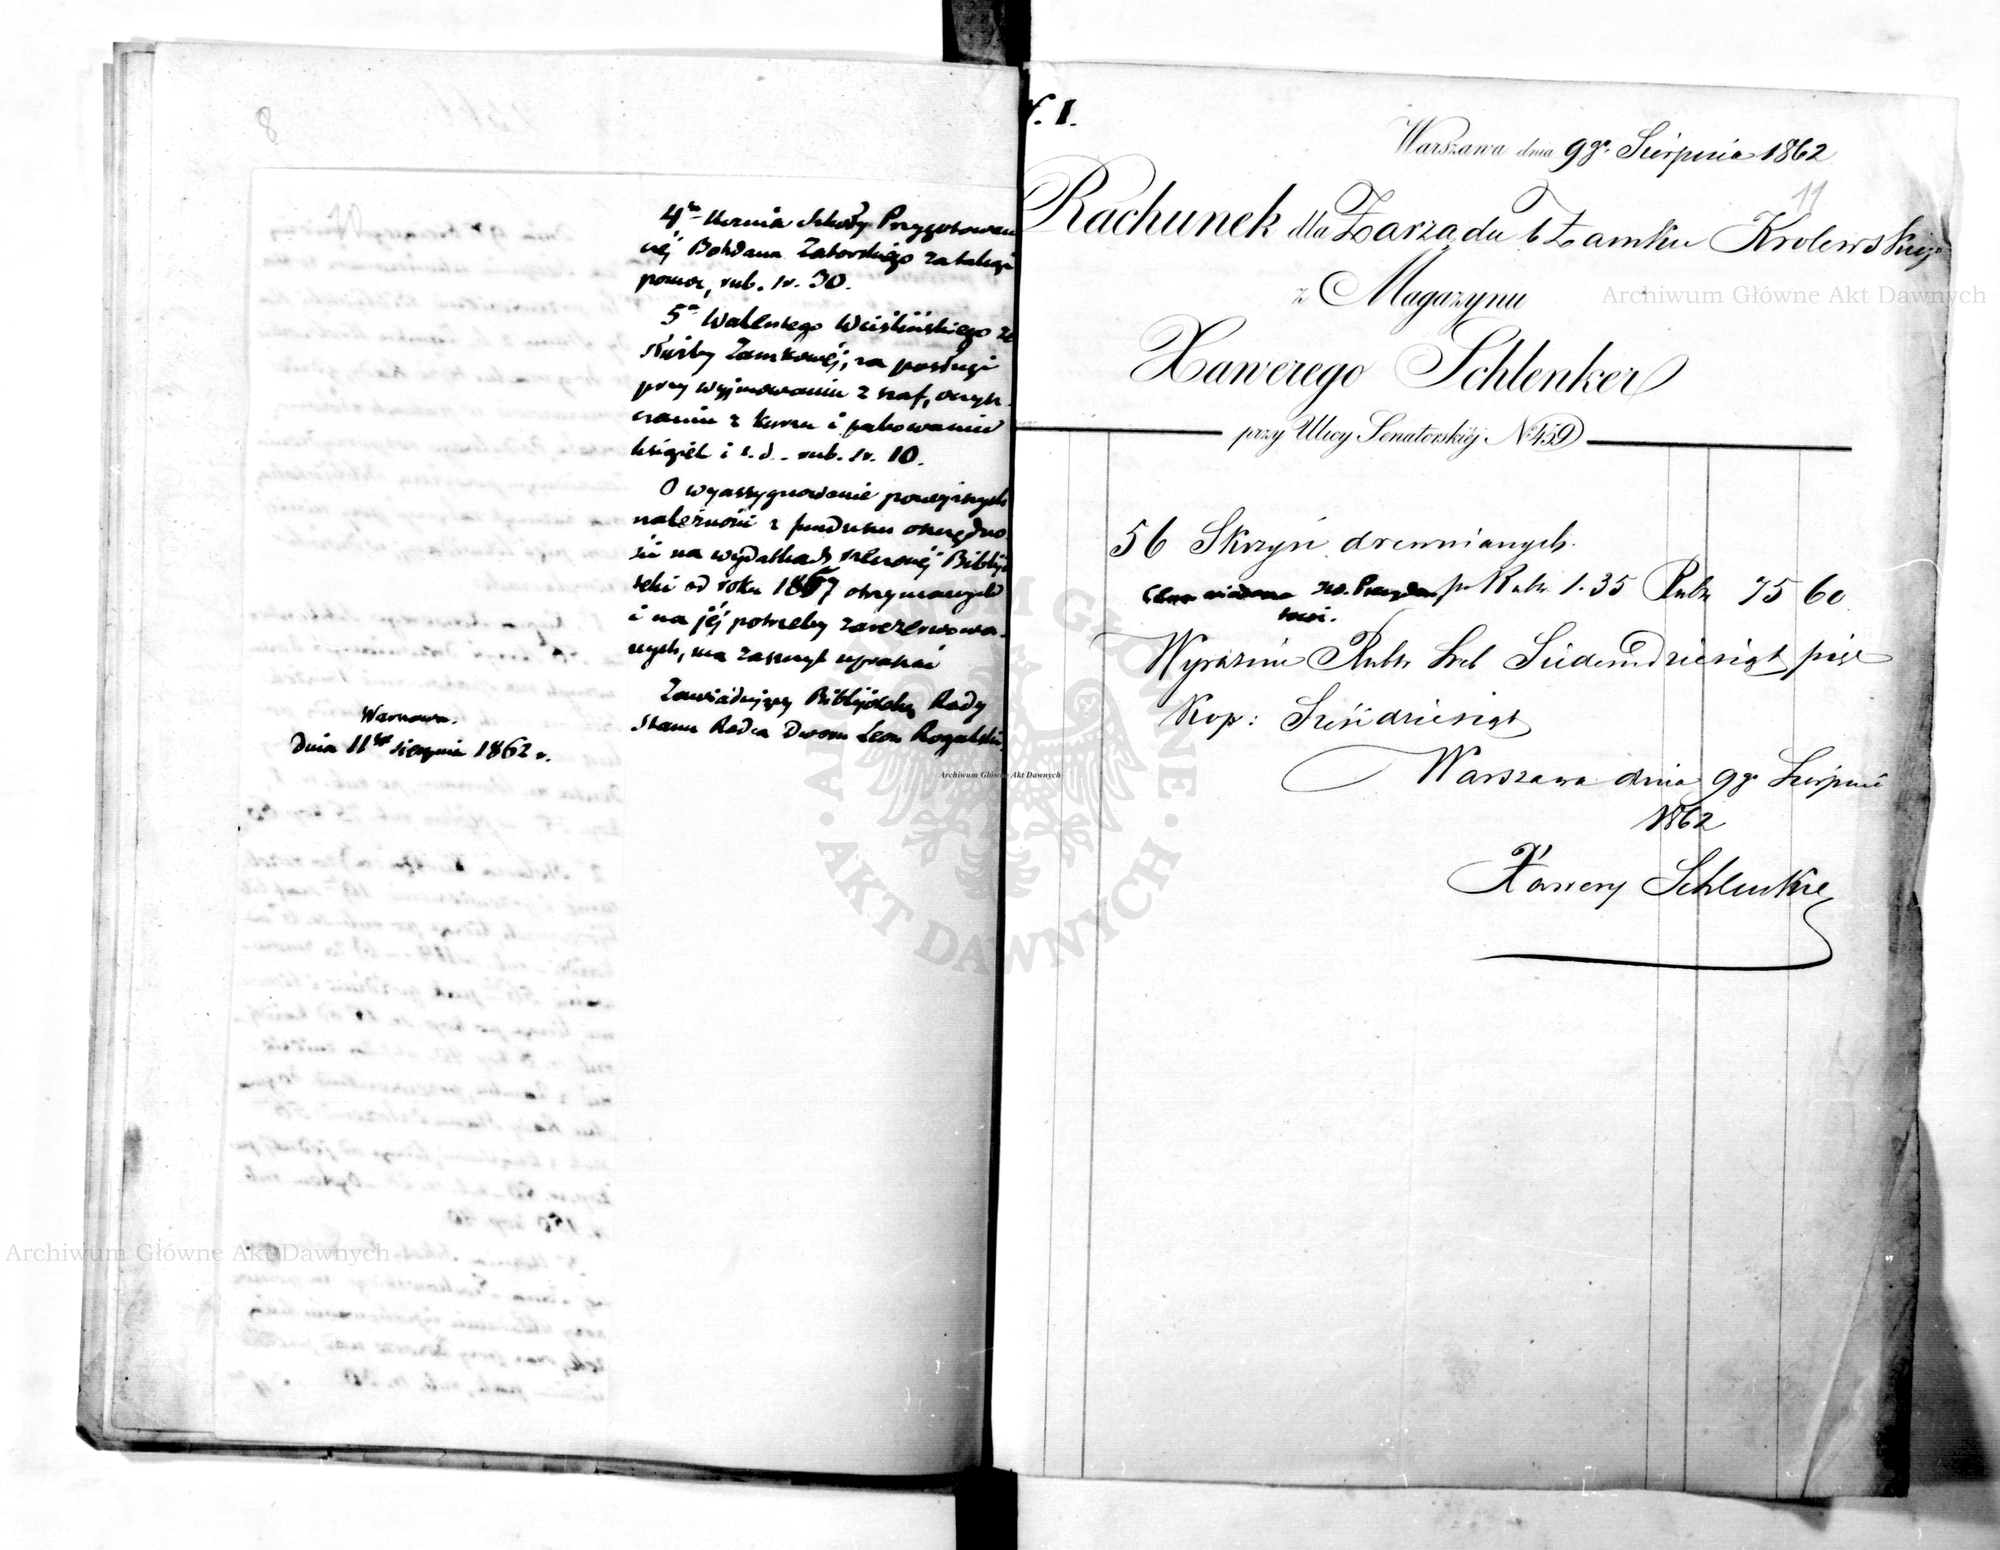 8
4to Ucznia Szkoły Przygotowaw
czéj Bohdana Zaborskiego za takąż
pomoc, rub. sr. 30.
5o Walentego Wciślińskiego ze
służby Zamkowéj, za posługi
przy wyjmowaniu z szaf, oczysz-
czaniu z kurzu i pakowaniu
książek i t. d. rub. sr. 10.
O wyassygnowanie powyższych
należności z funduszu oszczędno
ści na wydatkach Biblijo
teki od roku 1857 otrzymanych
i na jéj potrzeby zarezerwowa-
nych, ma zaszczyt upraszać
Zawiadujący Biblijoteką Rady
Stanu Radca Dworu Leon Rogalski
Warszawa.
Dnia 11go sierpnia 1862 r.
N. 1.
Warszawa dnia 9go Sierpnia 1862
11
Rachunek dla Zarządu b Zamku Krolewskiego
z Magazynu
Xawerego Schlenker
przy Ulicy Senatorskiéj No 459
56 Skrzyń drewnianych.
po Rubr 1.35 Rubr 75 60
Wyraznie Rubr Sreb Siedemdziesiąt pięć
Kop: Sześćdziesiąt
Warszawa dnia 9go Sierpnia
1862
Xawery Schlenker
Archiwum Główne Akt Dawnych
Archiwum Główne Akt Dawnych
Archiwum Główne Akt Dawnych
ARCHIWUM GŁÓWNE · AKT DAWNYCH ·